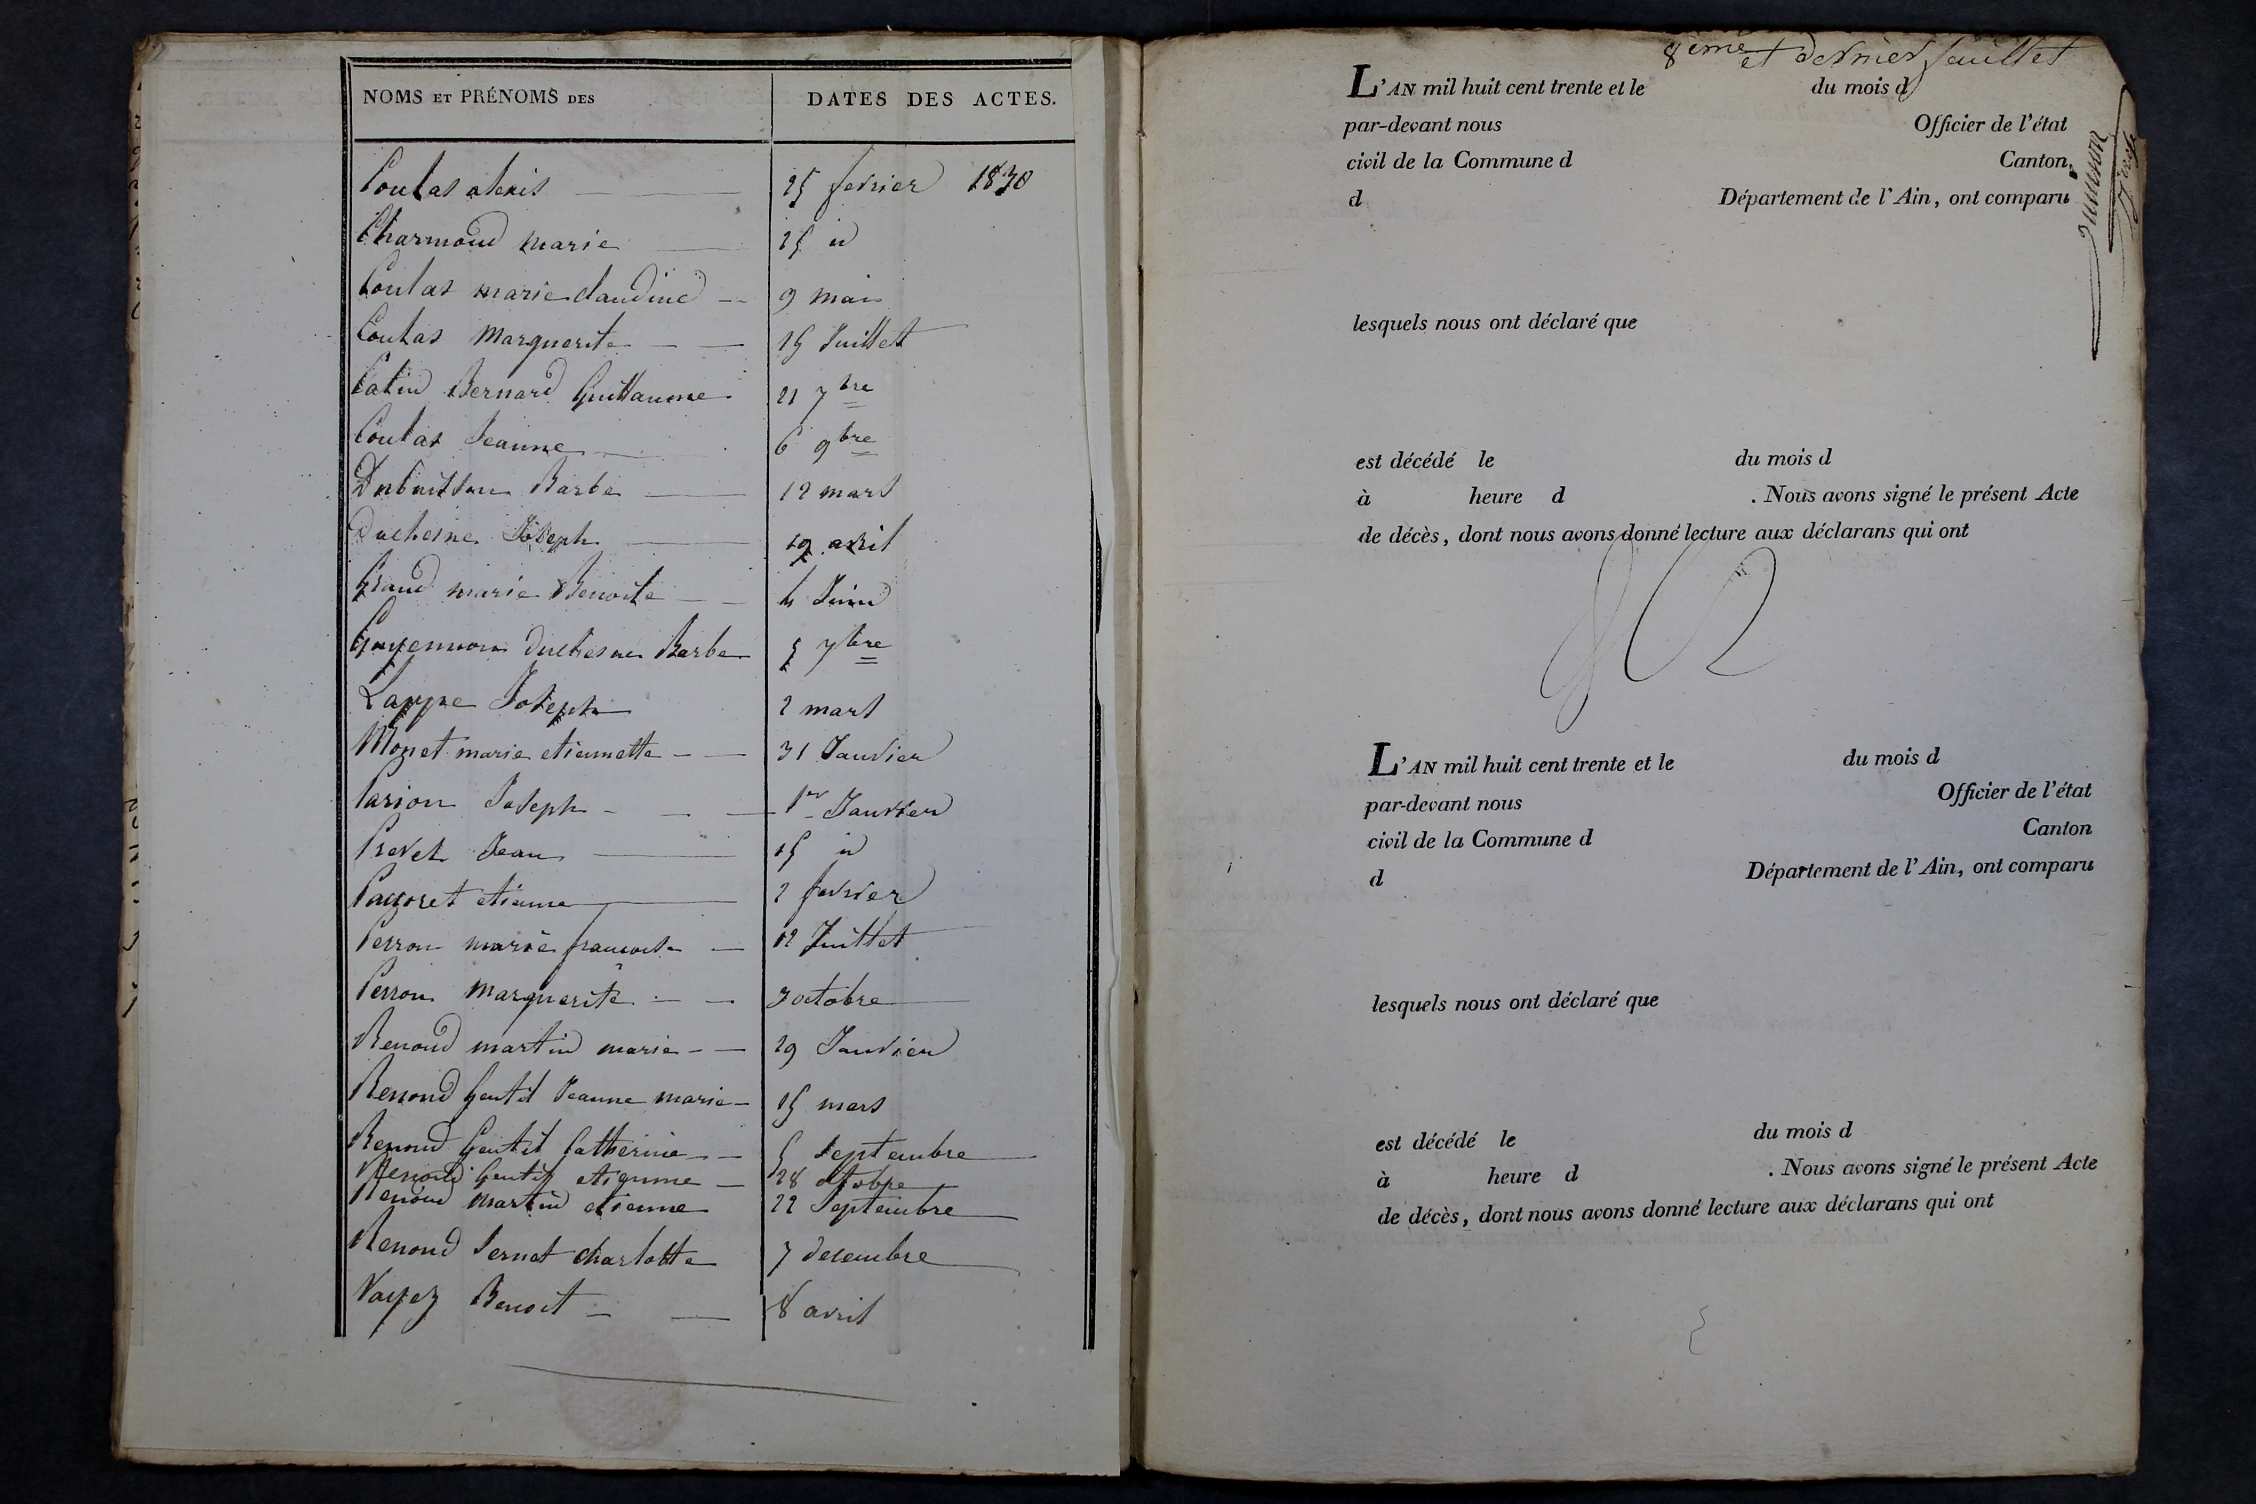 NOMS ET PRÉNOMS DES DATES DES ACTES.
Coulas alexis 25 fevrier 1830
Charmond marie 25 id
Coulas marie claudine 9 mai
Coulas Marguerite 15 Juillet
Catin Bernard Guillaume 21 7bre
Coulas Jeanne 6 9bre
Dubuisson Barbe 12 mars
Duchesne Joseph 19 avril
Grand marie Benoite 4 Juin
Guyennon Duchesne Barbe 5 7bre
Lappe Joseph 2 mars
Monet marie etiennette 31 Janvier
Parion Joseph 1er Janvier
Prevet Jean 15 id
Pagoret etienne 2 fevrier
Perron marie francoise 12 Juillet
Perron Marguerite 3 octobre
Renoud martin marie 29 Janvier
Renoud Gentil Jeanne marie 15 mars
Renoud Gentil Catherine 5 Septembre
Renoud Gentil etienne 28 octobre
Renoud Martin etienne 22 Septembre
Renoud Pernet charlotte 7 decembre
Vayez Benoit 8 avril
8ème et dernier feuillet
L'AN mil huit cent trente et le du mois d
par-devant nous Officier de l'état
civil de la Commune d Canton
d Département de l'Ain, ont comparu
lesquels nous ont déclaré que
est décédé le du mois d
à heure d . Nous avons signé le présent Acte
de décès, dont nous avons donné lecture aux déclarans qui ont
L'AN mil huit cent trente et le du mois d
par-devant nous Officier de l'état
civil de la Commune d Canton
d Département de l'Ain, ont comparu
lesquels nous ont déclaré que
est décédé le du mois d
à heure d . Nous avons signé le présent Acte
de décès, dont nous avons donné lecture aux déclarans qui ont